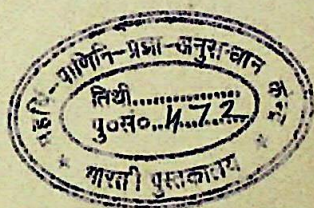 महर्षि-पाणिनि-प्रज्ञा-अनुसन्धान केन्द्र
तिथी...............
पु०सं०..472......
* भारती पुस्तकालय *